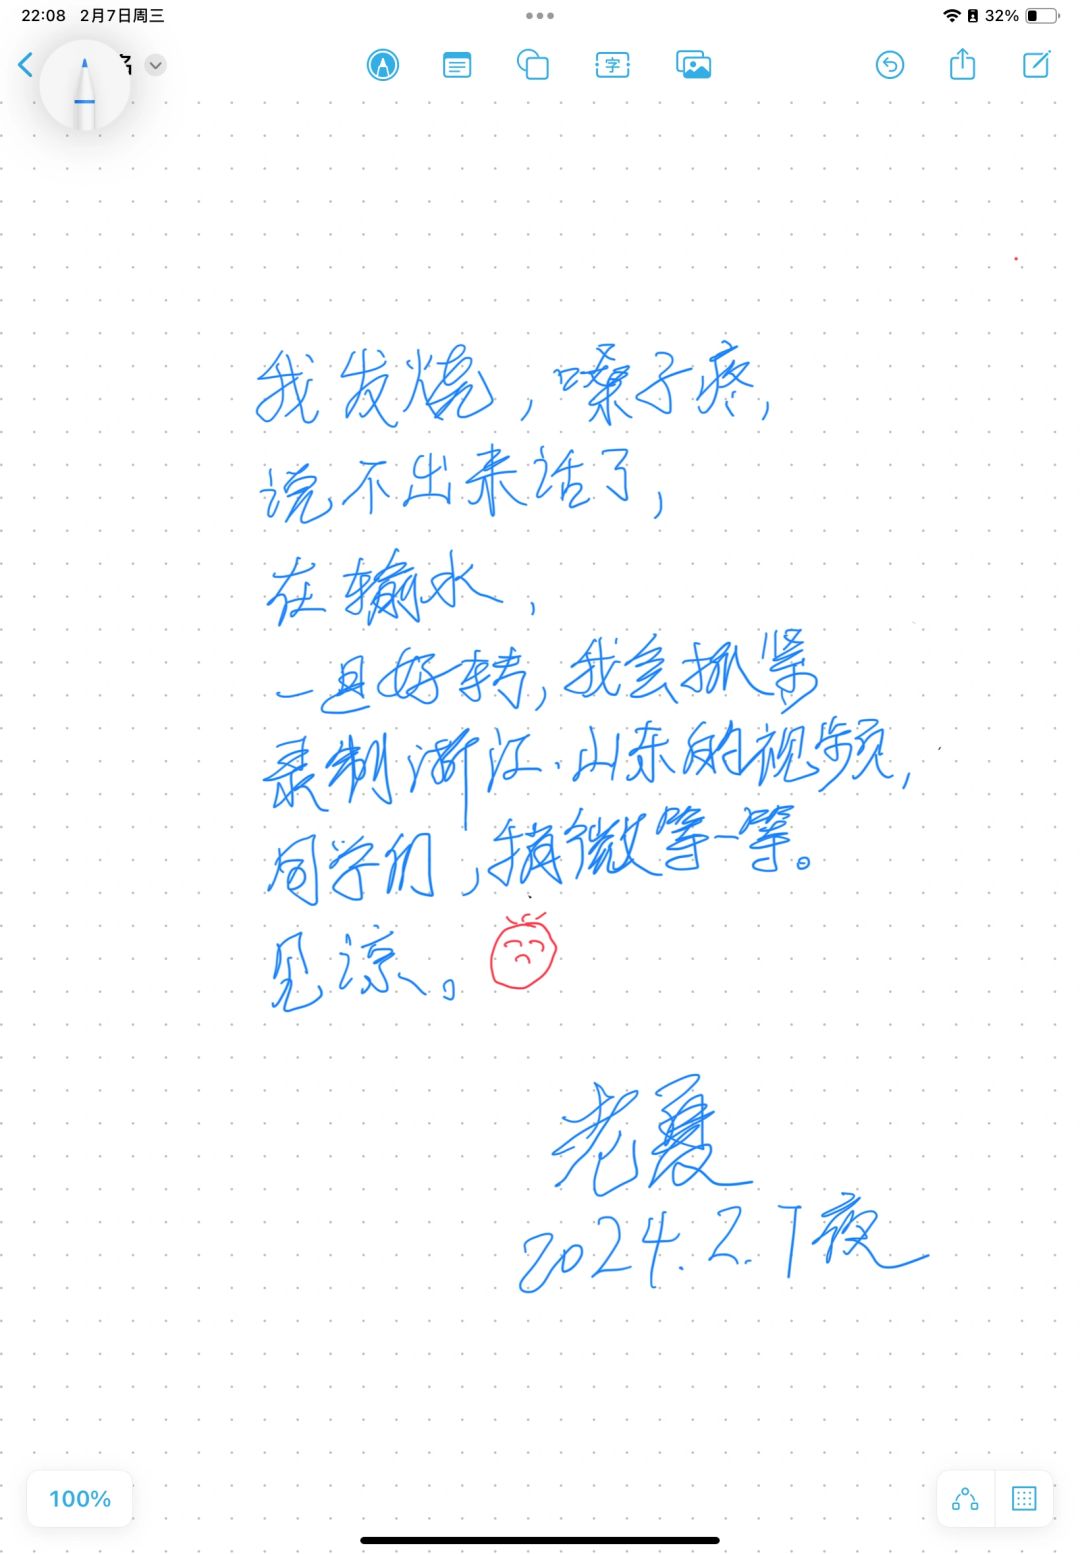 22:08 2月7日周三
32%
字
我发烧，嗓子疼，
说不出来话了，
在输水，
一旦好转，我会抓紧
录制浙江.山东的视频，
同学们，稍微等一等。
见谅。
老夏
2024.2.7夜
100%